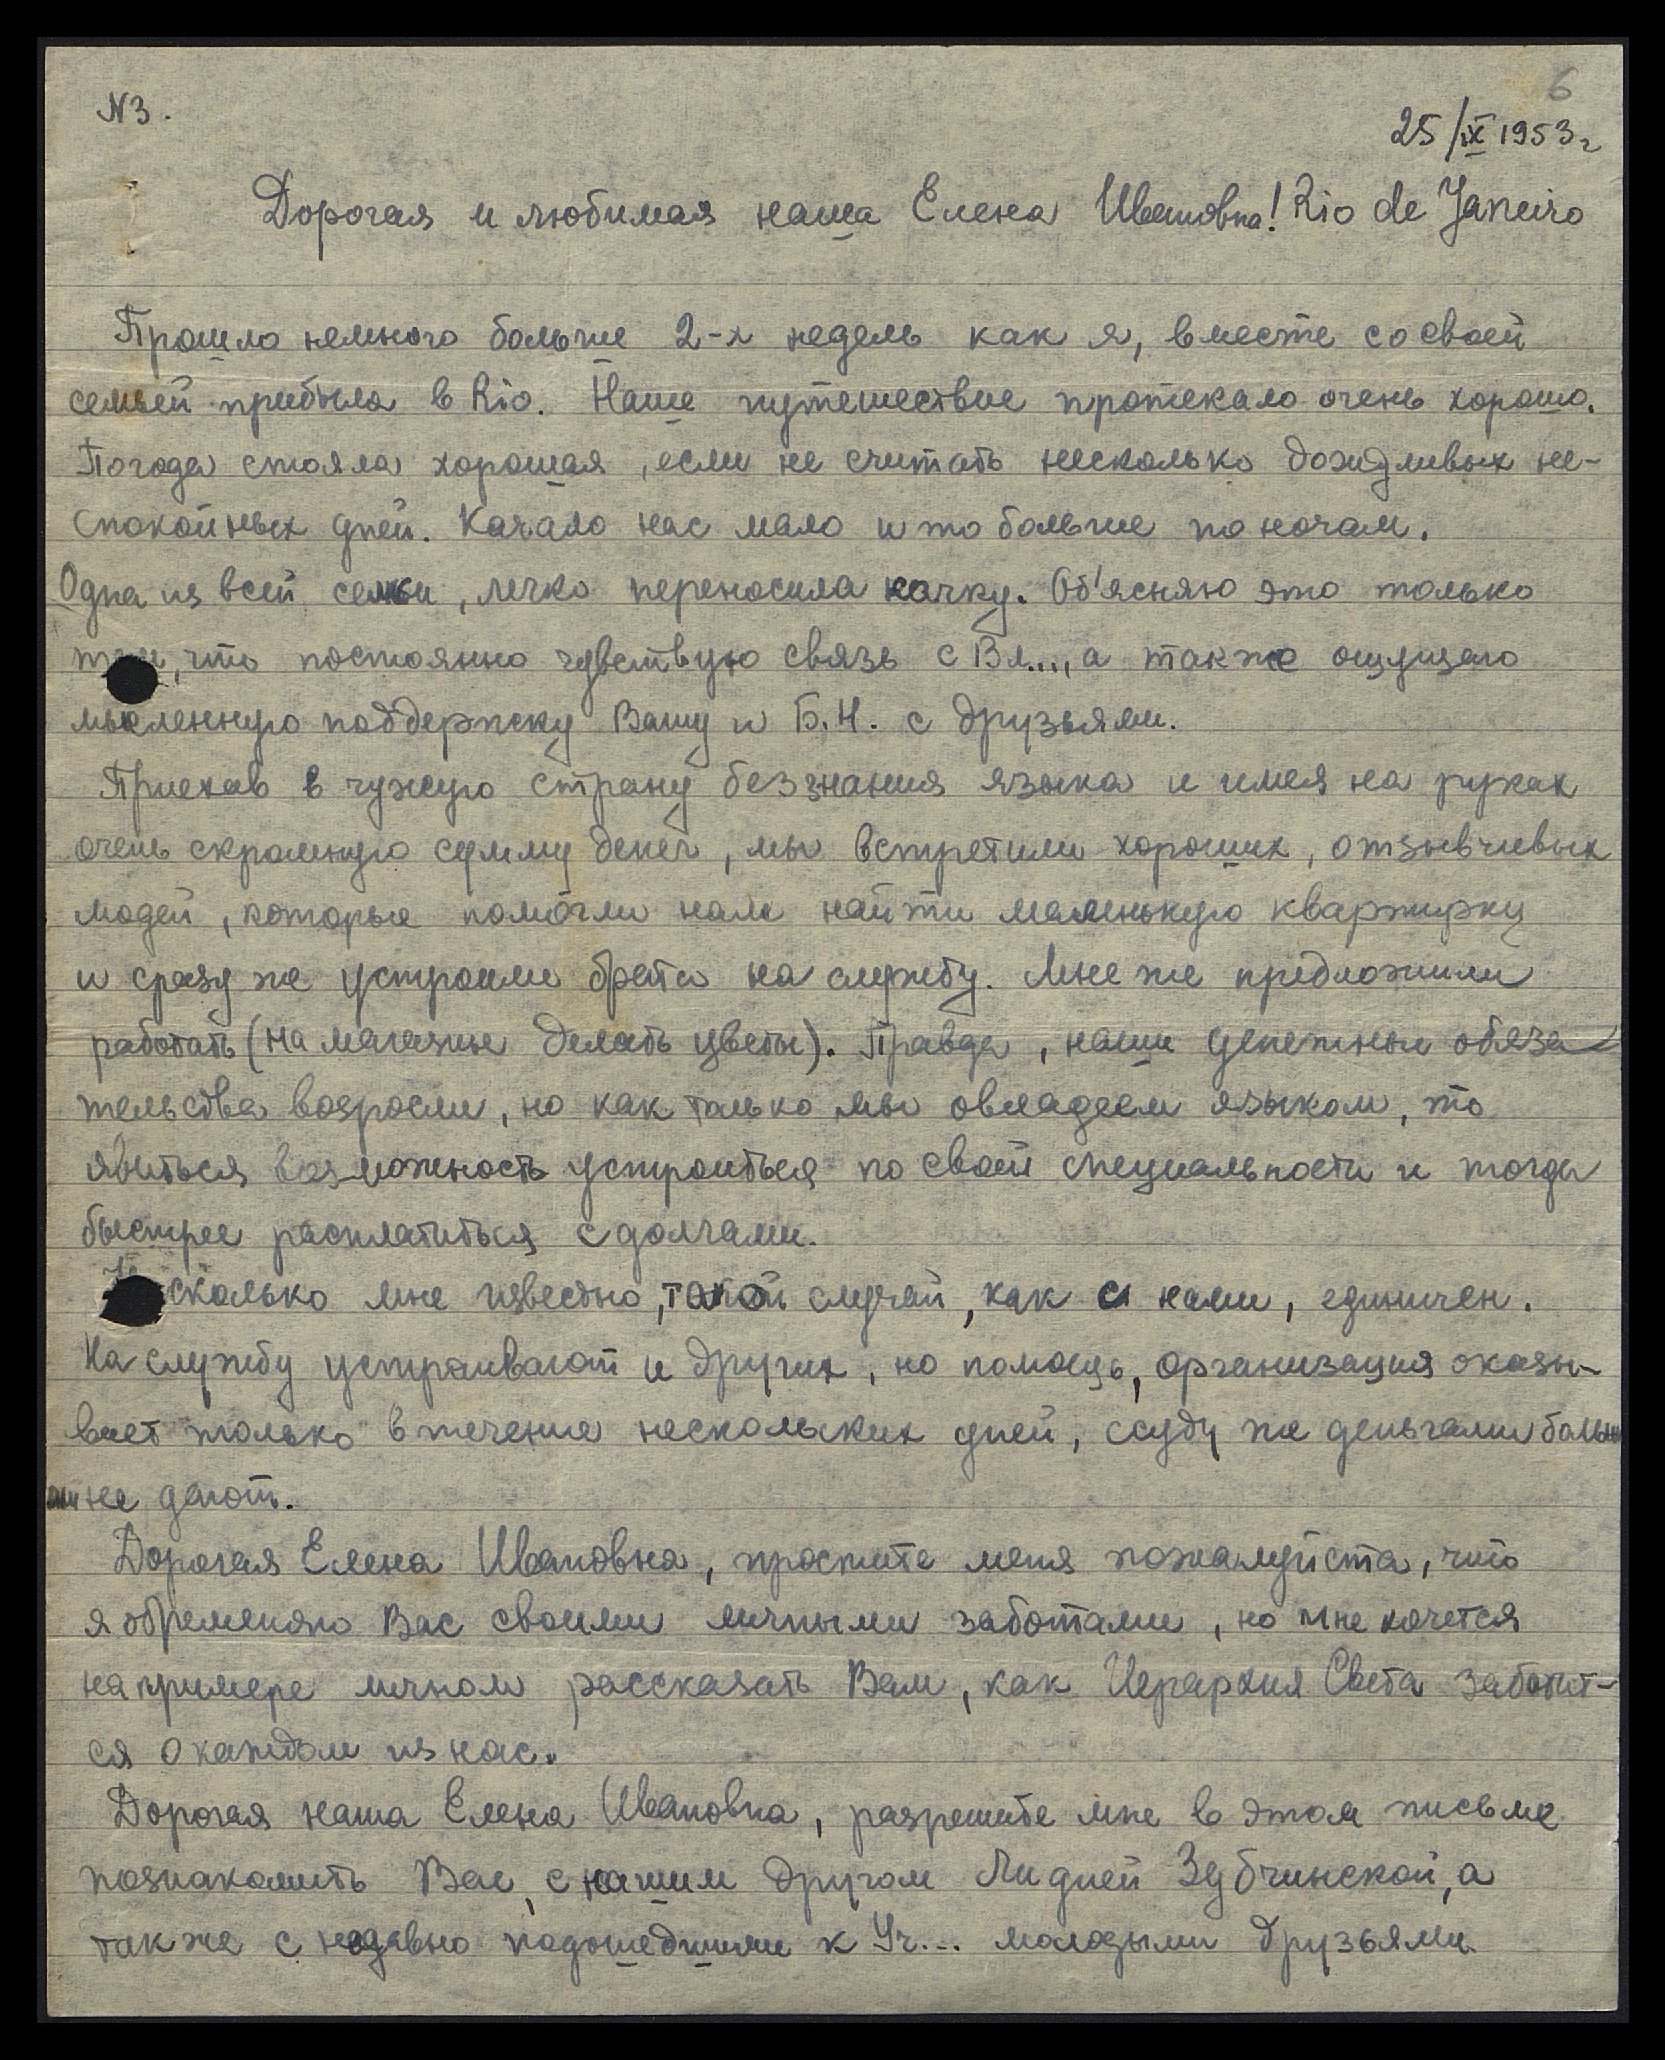 6
N3.
25/IX 1953 г
Дорогая и любимая наша Елена Ивановна! Rio de Janeiro
Прошло немного больше 2-х недель как я, вместе со своей
семьей прибыла в Rio. Наше путешествие протекало очень хорошо.
Погода стояла хорошая, если не считать несколько дождливых не-
спокойных дней. Качало нас мало и то больше по ночам.
Одна из всей семьи, легко переносила качку. Об'ясняю это только
тем, что постоянно чувствую связь с Вл..., а также ощущаю
мысленную поддержку Вашу и Б.Н. с друзьями.
Приехав в чужую страну без знания языка и имея на руках
очень скромную сумму денег, мы встретили хороших, отзывчивых
людей, которые помогли нам найти маленькую квартирку
и сразу же устроили брата на службу. Мне же предложили
работать (на магазин делать цветы). Правда, наши денежные обяза
тельства возросли, но как только мы овладеем языком, то
явиться возможность устроиться по своей специальности и тогда
быстрее расплатиться с долгами.
Насколько мне известно, такой случай, как с нами, единичен.
На службу устраивают и других, но помощь, организация оказы-
вает только в течение нескольких дней, ссуду же деньгами больше
не дают.
Дорогая Елена Ивановна, простите меня пожалуйста, что
я обременяю Вас своими личными заботами, но мне хочется
на примере личном рассказать Вам, как Иерархия Света заботит-
ся о каждом из нас.
Дорогая наша Елена Ивановна, разрешите мне в этом письме
познакомить Вас, с нашим другом Лидией Зубчинской, а
также с недавно подошедшими к Уч... молодыми друзьями.